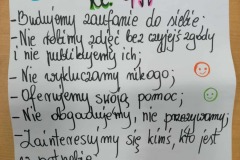 - Budujemy zaufanie do siebie;
- Nie robimy zdjęć bez czyjejś zgody
i nie publikujemy ich;
- Nie wykluczamy nikogo;
- Oferujemy swoją pomoc;
- Nie obgadujemy, nie przezywamy;
- Zainteresujmy się kimś, kto jest
w potrzebie